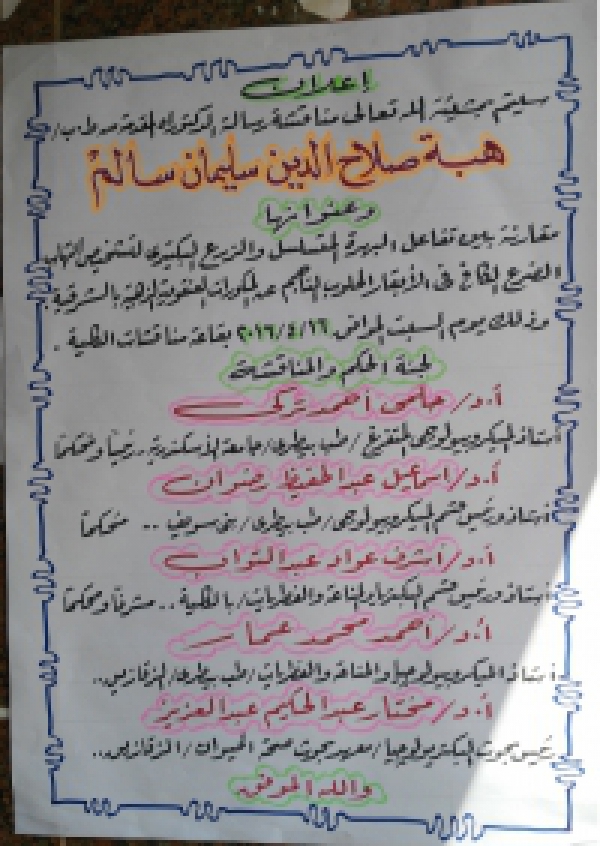 إعلان
سيتم بمشيئة الله تعالى مناقشة رسالة الدكتوراه المقدمة من ط.ب/
هبة صلاح الدين سليمان سالم
وعنوانها
مقارنة بين تفاعل البلمرة المتسلسل والزرع البكتيري لتشخيص التهاب
الضرع في الأبقار الحلوب الناجم عن المكورات العنقودية الذهبية بالشرقية
وذلك يوم السبت الموافق ٢٠١٦/٤/١٦ بقاعة مناقشات الكلية .
لجنة الحكم والمناقشة
أ.د/ حلمى أحمد تركى
أستاذ الميكروبيولوجى المتفرغ / طب بيطرى / جامعة الأسكندرية .. رئيساً ومحكماً
أ.د/ اسماعيل عبد الحفيظ رضوان
أستاذ ورئيس قسم الميكروبيولوجى / طب بيطرى / بنى سويف .. محكماً
أ.د/ أشرف عواد عبد التواب
أستاذ ورئيس قسم البكتريا والمناعة والفطريات / بالكلية .. مشرفاً ومحكماً
أ.د/ أحمد محمد عمار
أستاذ الميكروبيولوجيا والمناعة والفطريات / طب بيطرى / الزقازيق..
أ.د/ مختار عبد الحكيم عبد العزيز
رئيس بحوث البكتريولوجيا / معهد بحوث صحة الحيوان / الزقازيق..
والله الموفق